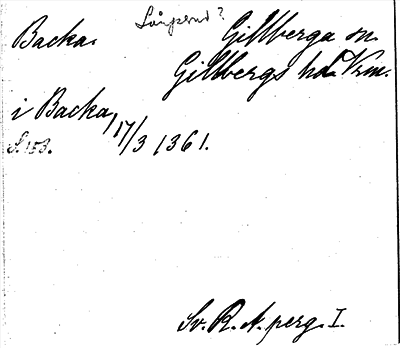 Långserud?
Backa. Gillberga sn.
Gillbergs hd. Vrm.
i Backa, 17/3 1361.
S. 153.
Sv. R. A. perg. I.